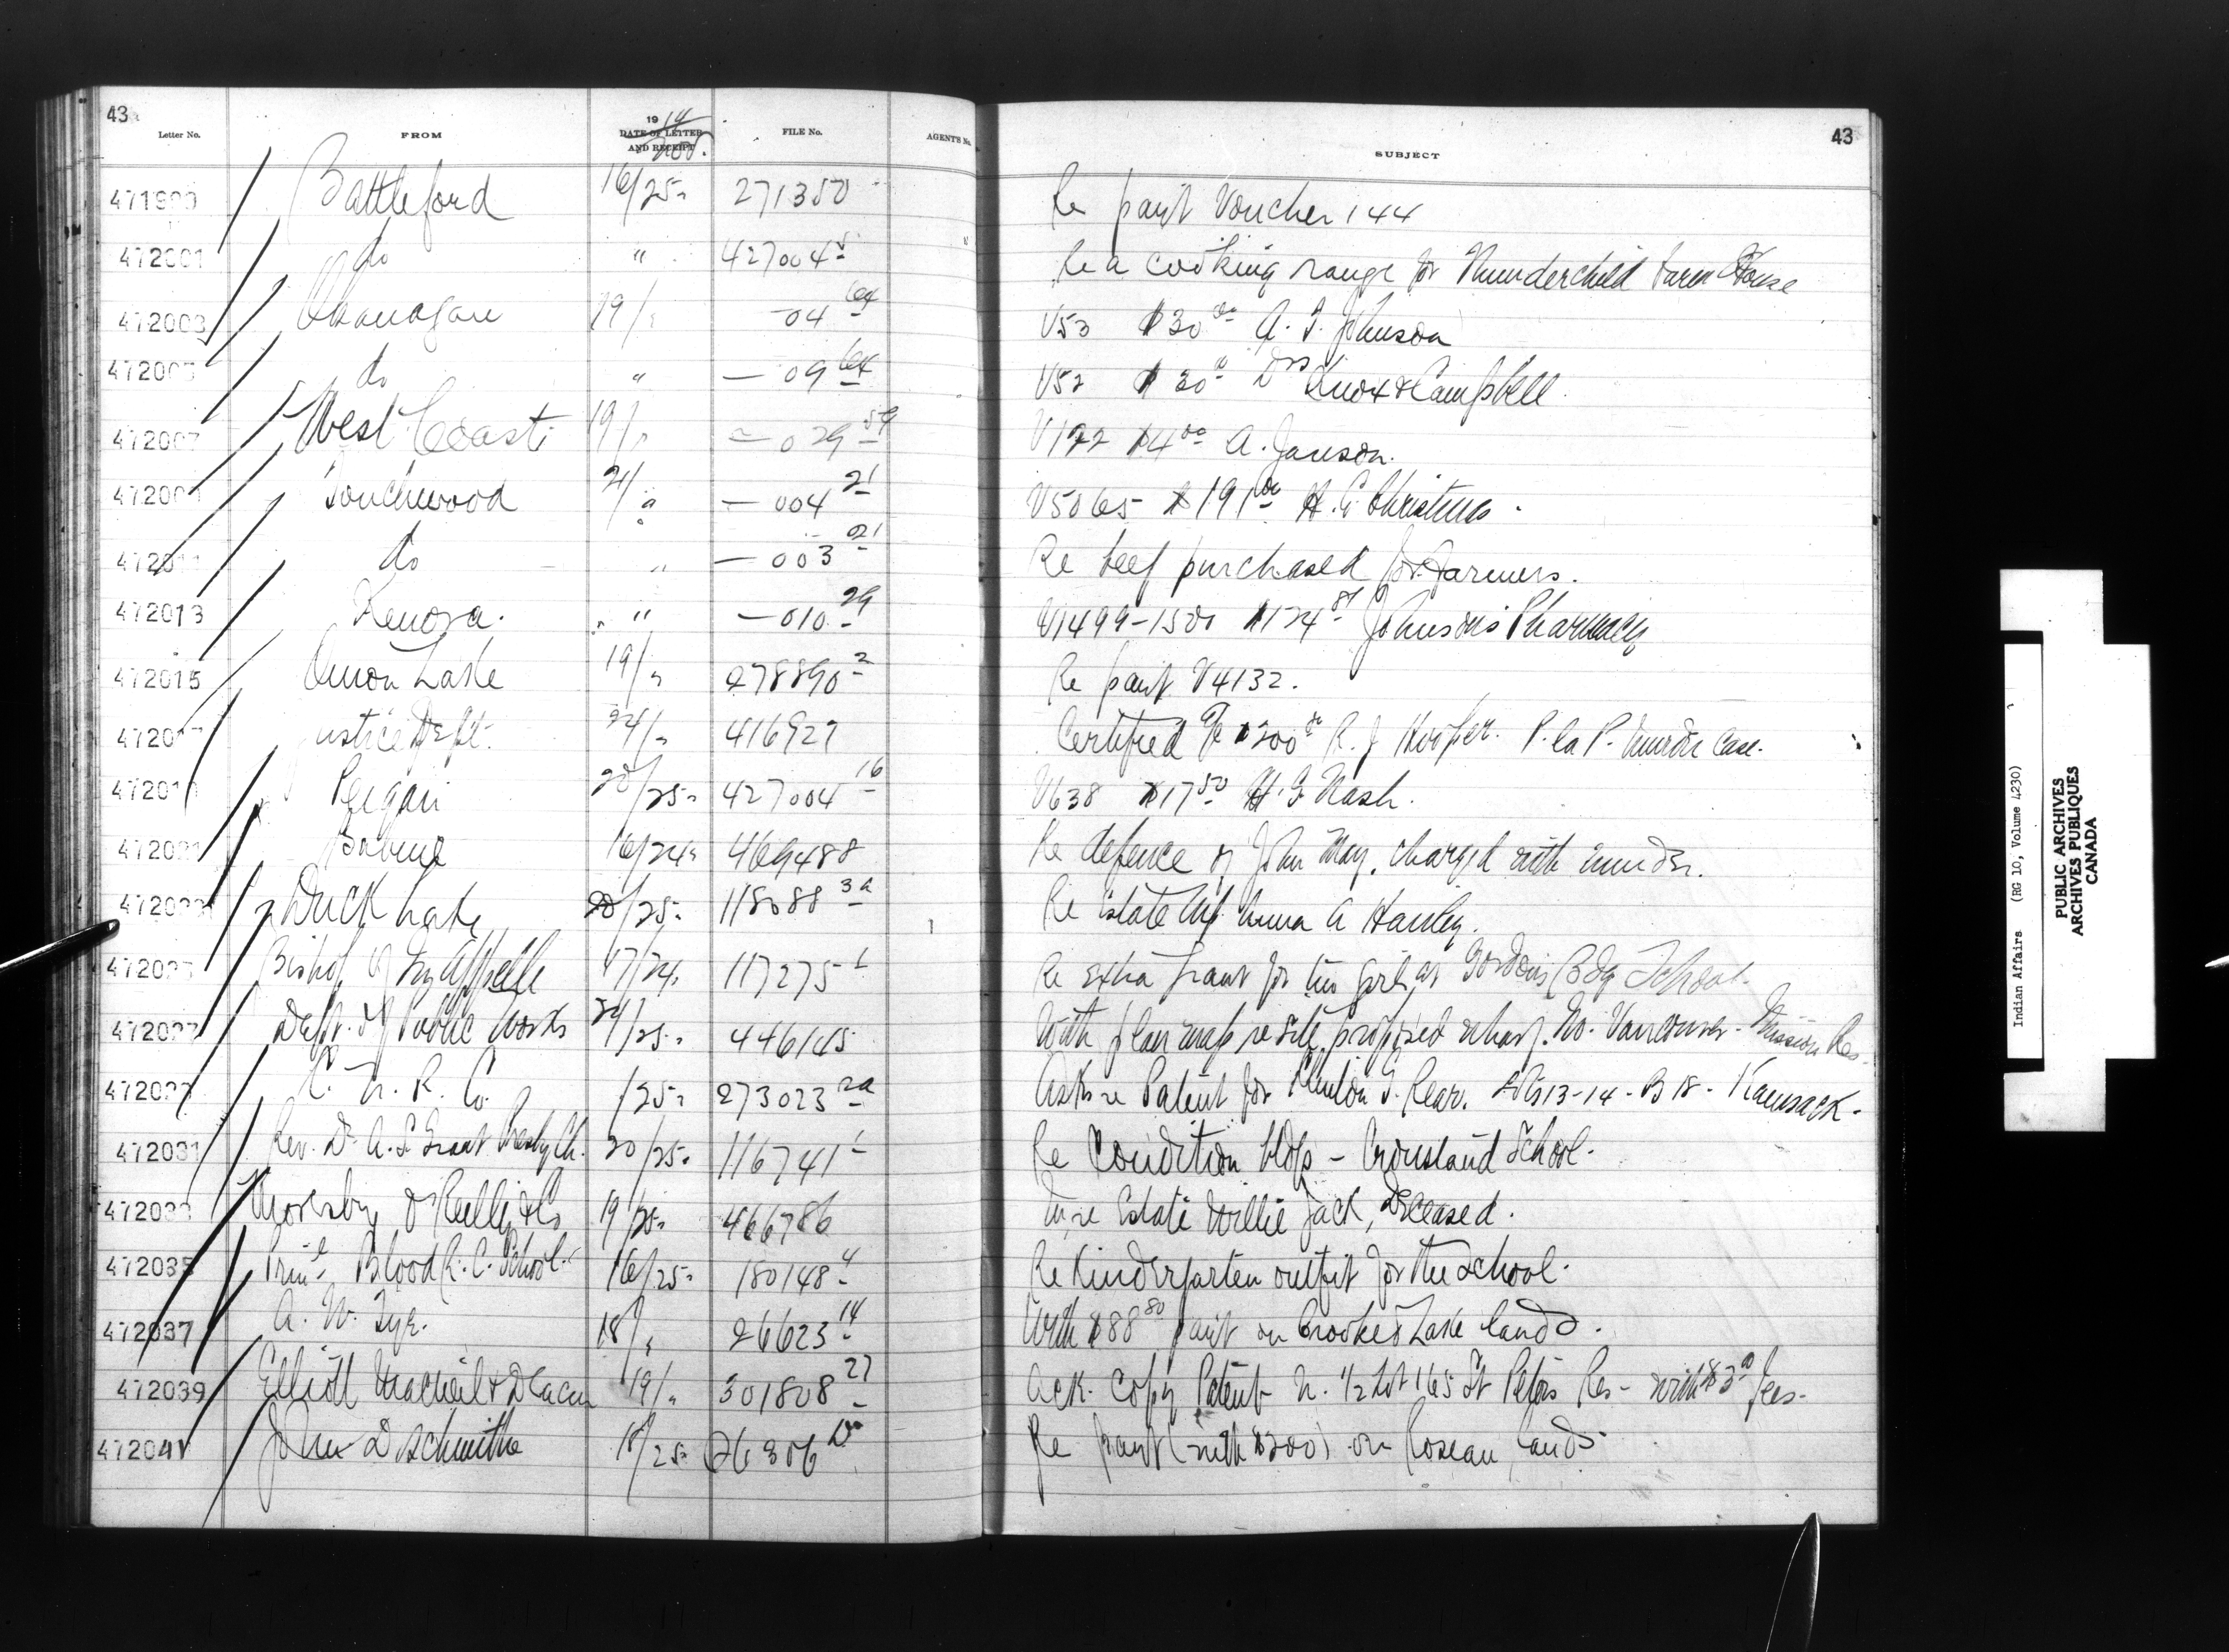 43 43
Letter No. FROM 1914 DATE OF LETTER AND RECEIPT Nov. FILE No. AGENT'S No. SUBJECT
Battleford 16/25 271350 Re paint Voucher 144
472001 do " 427004 Re a cooking range for Thunderchild Farm House
472003 Okanagan 19/" —04 64 V53 $30 00 A. T. Johnson
do " —09 64 V52 $30 Drs Knox & Campbell
472007 West Coast 19/" —029 59 $4 00 A. Janson.
Touchwood 21/" —004 21 V5065 $191 00 H.
472011 do " —003 21 Re beef purchased for farmers.
472013 Kenora. " —010 29 V1499-1500 $124 81 Johnson's Pharmacy
472015 Onion Lake 19/" 278890 2 Re paint V4132.
Justice Dept. 24/" 416927 Certified $200 R. J. Hooper. P. la P. murder case.
Peigan 20/25 427004 16 V638 $17 50 H. G. Nash.
Babine 16/24 469488 Re defence of John May, charged with murder.
Duck Lake 20/25 118088 3a Re Estate Anna A
Bishop of Qu'Appelle 17/24 117275 1 Re extra grant for girls at Gordon's Bdg School.
472027 Dept. of Public Works 24/25 446145 With plan map re site proposed wharf. No. Vancouver - Mission Res.
C. N. R. Co. /25 273023 2a Asks re Patent for Lots 13-14 - B 18 - Kamsack.
472031 Rev. Dr A. S. Grant Presby Ch. 20/25 116741 1 Re condition bldgs - School.
472033 19/25 466786 re Estate Willie Jack, Deceased.
472035 Prinl Blood R. C. School 16/25 180148 4 Re Kindergarten outfit for the School.
472037 A. W. 18/" 26623 14 With $88 80 paint on Crooked Lake lands.
472039 Elliott Macneil & Deacon 19/" 301808 27 Ack. Copy Patent N. 1/2 Lot 165 St Peters Res - with $3 00 fees.
472041 John D 18/25 26306 Re paint (with $200) on Roseau lands
Indian Affairs (RG 10, Volume 4230)
PUBLIC ARCHIVES
ARCHIVES PUBLIQUES
CANADA